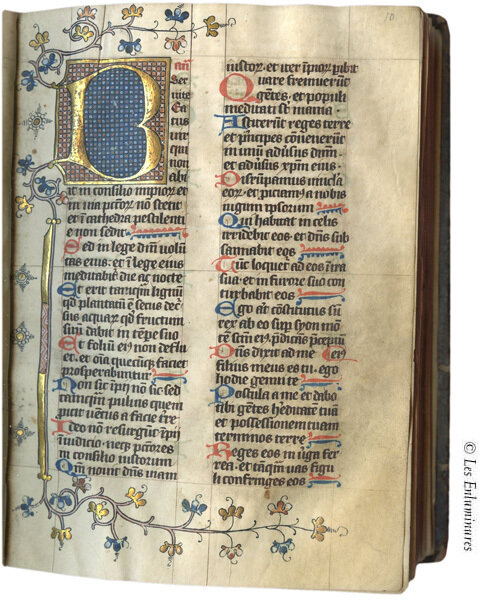 10
añ
Ser
uite
B
Ea
tus
uir
qui
non
abi
it in consilio impioꝝ et
in uia pctoꝝ nō stetit
et ī cathedra pestilenti
e non sedit
Sed in lege dnī volūn
tas eius: et ī lege eius
meditabit̉ die ac nocte
Et erit tanq̄m lignū
qd̄ plantatū ē secus dec̉
sus aquaꝝ qd̄ fructum
suū dabit in tēpe suo
Et foliū eiꝰ non deflu
et: et oīa quecūqꝫ faciet
prosperabuntur
Non sic īpij nō sic: sed
tanq̄m puluis quem
ꝓicit uētus a facie t̉re
Ideo nō resurgūt īpij
ī iudicio: neqꝫ pctōres
in consilio iustorum
Qm̄ nouit dn̄s uiam
iustoꝝ: et iter īpioꝝ ꝑibit
Quare fremuerūt
gētes: et populi
meditati sūt inania
Astiterūt reges terre
et pͥncipes conuenerūt
in unū aduersus dnm̄:
et aduersus xp̄m eius
Disrūpamus uincla
eoꝝ: et ꝓiciamꝰ a nobis
iugum ipsorum
Qui habitat in celis
irridebit eos: et dn̄s sub
sannabit eos
Tūc loquet̉ ad eos ī ira
sua: et in furore suo con
turbabit eos
Ego aūt cōstitutus sū
rex ab eo suꝑ syon mō
tē scm̄ eiꝰ: p̄dicās p̄ceptū eiꝰ
Dn̄s dixit ad me
filius meus es tu: ego
hodie genui te
Postula a me et dabo
tibi gētes hēditatē tuā
et possessionem tuam
terminos terre
Reges eos in uirga fer
rea: et tāq̄m uas figu
li confringes eos
© Les Enluminures